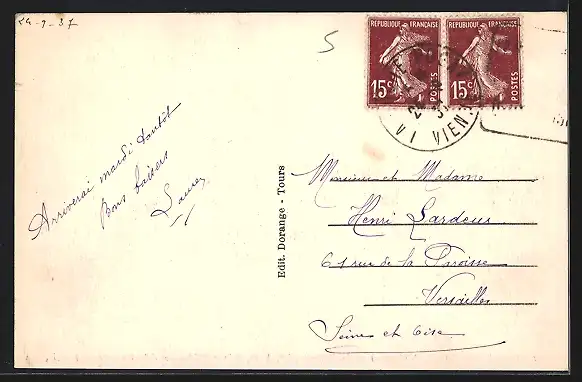 24-9-37
5
REPUBLIQUE FRANÇAISE
15c POSTES
REPUBLIQUE FRANÇAISE
15c POSTES
VIENNE
Arriverai mardi tantôt
Bons baisers
Edit. Dorange - Tours
Monsieur et Madame
Henri Lardeus
61 rue de la Paroisse
Versailles
Seine et Oise